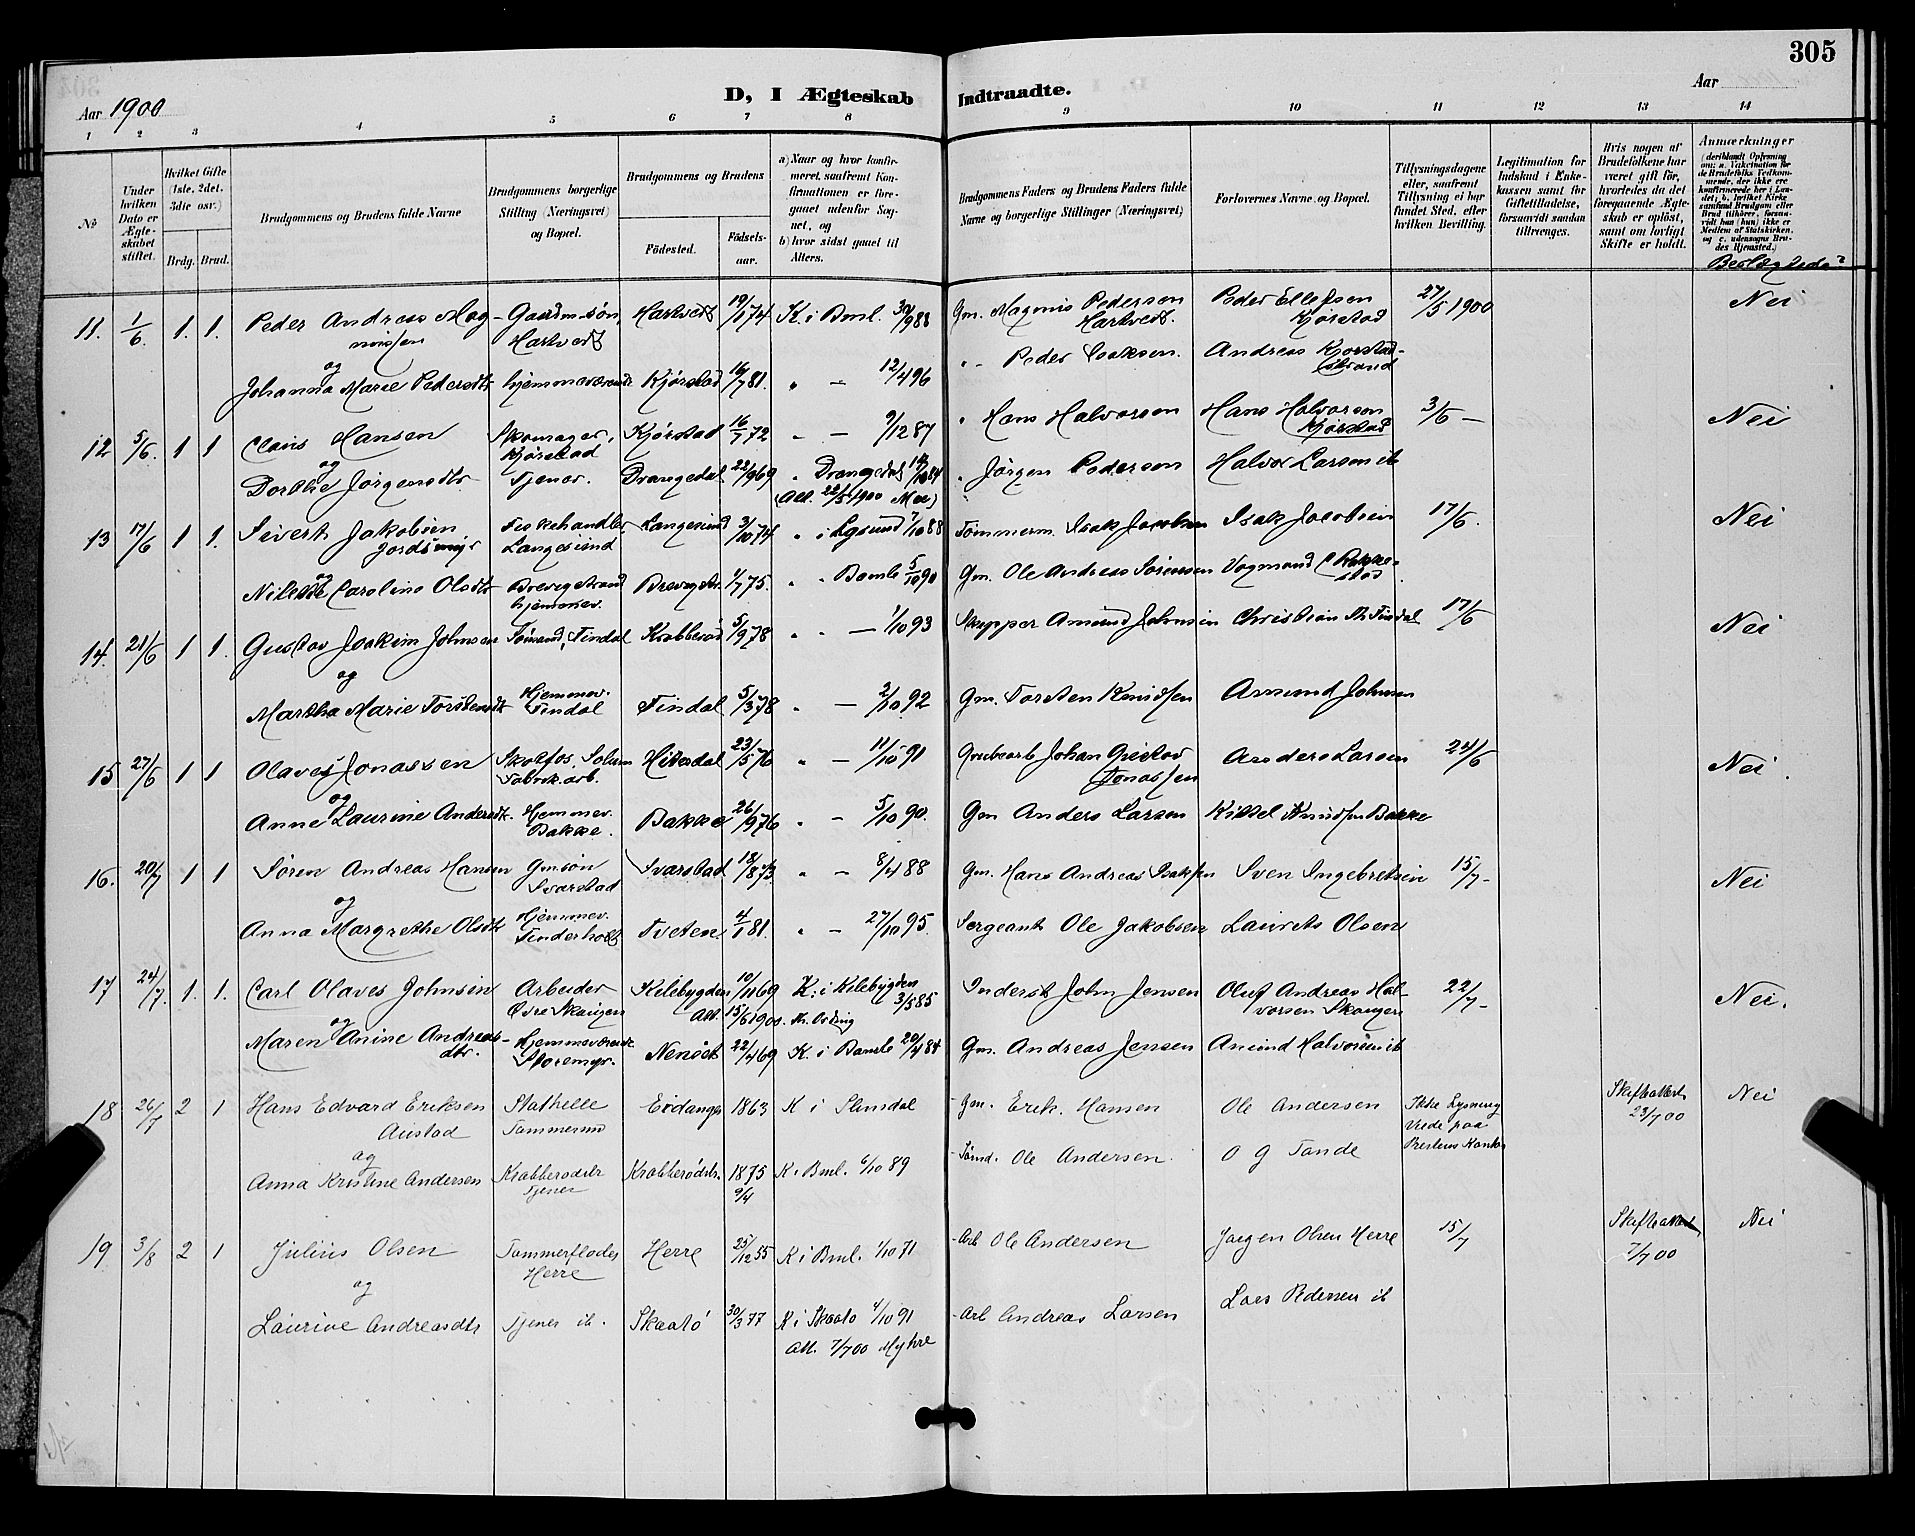 305
Aar 1900
D, I Ægteskab Indtraadte.
Aar
1 2 3 4 5 6 7 8 9 10 11 12 13 14
№
Under hvilken Dato er Ægteskabet stiftet.
Hvilket Gifte (1ste, 2det, 3die osv.)
Brdg. Brud.
Brudgommens og Brudens fulde Navne
Brudgommens borgerlige Stilling (Næringsvei) og Bopæl.
Brudgommens og Brudens
Födested.
Födsels-aar.
a) Naar og hvor konfirmeret, saafremt Konfirmationen er foregaaet udenfor Sognet, og
b) hvor sidst gaaet til Alters.
Brudgommens Faders og Brudens Faders fulde Navne og borgerlige Stillinger (Næringsvei)
Forlovernes Navne og Bopæl.
Tillysningsdagene eller, saafremt Tillysning ei har fundet Sted, efter hvilken Bevilling.
Legitimation for Indskud i Enkekassen samt for Giftetilladelse, forsaavidt saadan tiltrænges.
Hvis nogen af Brudefolkene har været gift för, hvorledes da det foregaaende Ægteskab er oplöst, samt om lovligt Skifte er holdt.
Anmærkninger
(deriblandt Oplysning om: a. Vakcination for de Brudefolks Vedkommende, der ikke ere konfirmerede her i Landet; b. hvilket Kirkesamfund Brudgom eller Brud tilhörer, forsaavidt han (hun) ikke er Medlem af Statskirken, og c. udensogns Brudes Hjemsted.)
Beslægtede?
11. 1/6. 1. 1. Peder Andreas Mag- Gaardm-søn, Hartvedt 19/1 74 K. i Bml. 30/9 88 Gm. Magnus Pedersen Peder Ellefsen 27/5 1900 Nei
nussen Hartvedt Hartvedt. Kjørstad
og
Johanna Marie Pedersdtr hjemmeværende Kjørstad 16/7 81. " – 12/4 96 " - Peder Isaksen. Andreas Kjørstad-
strand
12 5/6. 1 1 Claus Hansen Skomager, Kjørstad 16/1 72 " – 9/12 87 " Hans Halvorsen Hans Halvorsen 3/6 – Nei
og Kjørstad Kjørstad
Dorthe Jørgensdtr Tjener. Drangedal 22/9 69 " Drangedal 12/10 84 " Jörgen Pedersen Halvor Larsen ib
(Att. 22/5 1900 Moe)
13 17/6 1 1. Sivert Jakobsen Fiskehandler Langesund 3/10 74 " i Lgsund 7/10 88 Tömmerm. Isak Jacobsen Isak Jacobsen 17/6. Nei
Jordsmyr Langesund
og
Caroline Olsdtr Brevigstrand Brevigstr. 1/7 75. " " Bamle 5/10 90 Gm. Ole Andreas Sörensen Vogmand C Rakke-
hjemmev. stad
14. 21/6 1 1. Gustav Joakim Johnsen Sömand, Findal Krabberød 5/9 78 " " – 1/10 93 Skipper Amund Johnsen Christian Th Findal 17/6 Nei
og
Martha Marie Torstensdtr Hjemmev. Findal 5/3 78 " – 2/10 92 Gm. Torsten Knudsen Amund Johnsen
Findal
15 27/6 1 1 Olaves Jonassen Skotfos, Solum Hiterdal 23/5 70 " – 11/10 91 Grubearb Johan Gustav Anders Larsen 24/6 Nei.
Fabrik.arb. Jonassen
og
Anne Laurine Andersdtr. Hjemmev. Bakke 26/9 76 " – 5/10 90. Gm Anders Larsen Kittel Knudsen Bakke
Bakke.
16. 20/7 1 1 Søren Andreas Hansen Gm.søn Svarstad 18/8 73 " – 8/4 88 Gm. Hans Andreas Isaksen Sven Ingebretsen 15/7 - Nei
Svarstad
og
Anna Margrethe Olsdtr Hjemmev. Tveten 4/1 81. " – 27/10 95. Sergeant Ole Jakobsen Laurets Olsen
Finderholt
17 24/7. 1. 1. Carl Olaves Johnsen Arbeider Kilebygden 10/11 69 K. i Kilebygden Inderst John Jensen Oluf Andreas Hal- 22/7 - Nei.
Øvre Skaugen Att. 15/6 1900. 3/5 85 vorsen Skaugen
og
Maren Anine Andreas- Hjemmeværende Nenset 22/4 69 K. i Bamle 20/4 84 Gm. Andreas Jensen Amund Halvorsen ib
dtr. Storemyr.
18 26/7 2 1 Hans Edvard Eriksen Stathelle Eidanger 1863 K i Slemdal - Gm. Erik. Hansen Ole Andersen Ikke Lysning Skifteattest Nei
Austad Tømmermd Viede paa 23/7 00
og Prestens Kontor
Anna Kristine Andersen Krabberødstr Krabberødstr. 1875 K. Bml. 6/10 89 - Sömd. Ole Andersen. O G Tande
Tjener 9/4
19 3/8 2 1 Julius Olsen Tømmerfløder Herre 25/12 55 K i Bml. 1/10 71 - Arb Ole Andersen Jørgen Olsen Herre 15/7 Skifteattest Nei
Herre 7/7 00
og
Laurine Andreasdtr Tjener ib. Skaatö 30/3 77 K i Skaatö 4/10 91 - Arb Andreas Larsen Lars Pedersen ib
Att. 7/7 00 Myhre